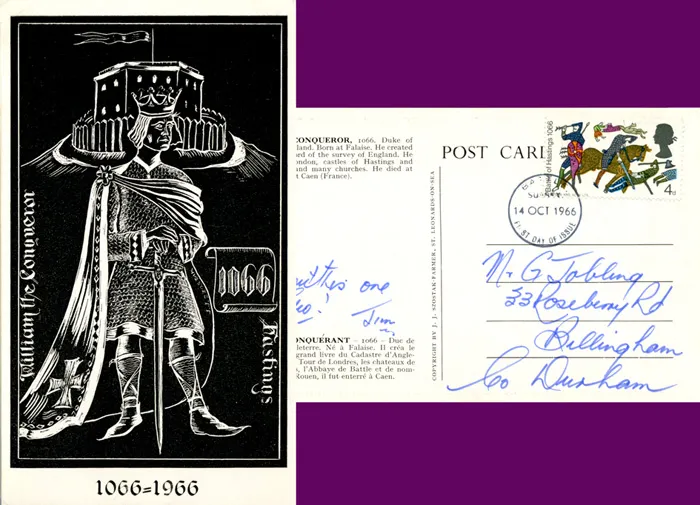 William the Conqueror
1066
Hastings
1066=1966
CONQUEROR, 1066. Duke of
land. Born at Falaise. He created
ord of the survey of England. He
ondon, castles of Hastings and
and many churches. He died at
t Caen (France).
this one
Jim
ONQUÉRANT – 1066 – Duc de
leterre. Né à Falaise. Il créa le
grand livre du Cadastre d'Angle-
Tour de Londres, les chateaux de
s, l'Abbaye de Battle et de nom-
Rouen, il fut enterré à Caen.
COPYRIGHT BY J. J. SZOSTAK-FARMER, ST. LEONARDS-ON-SEA
POST CARD
Battle of Hastings 1066
4d
14 OCT 1966
FIRST DAY OF ISSUE
Mr G Jobling
33 Roseberry Rd
Billingham
Co Durham